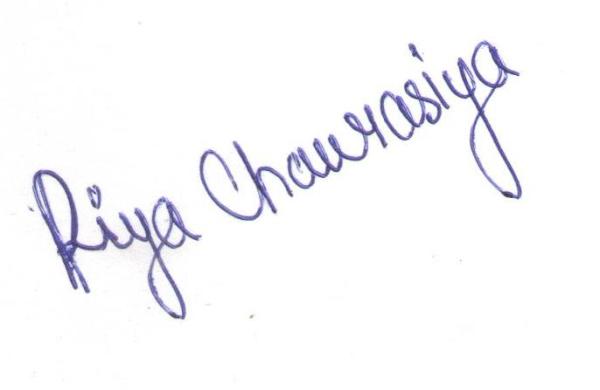 Riya Chaurasiya